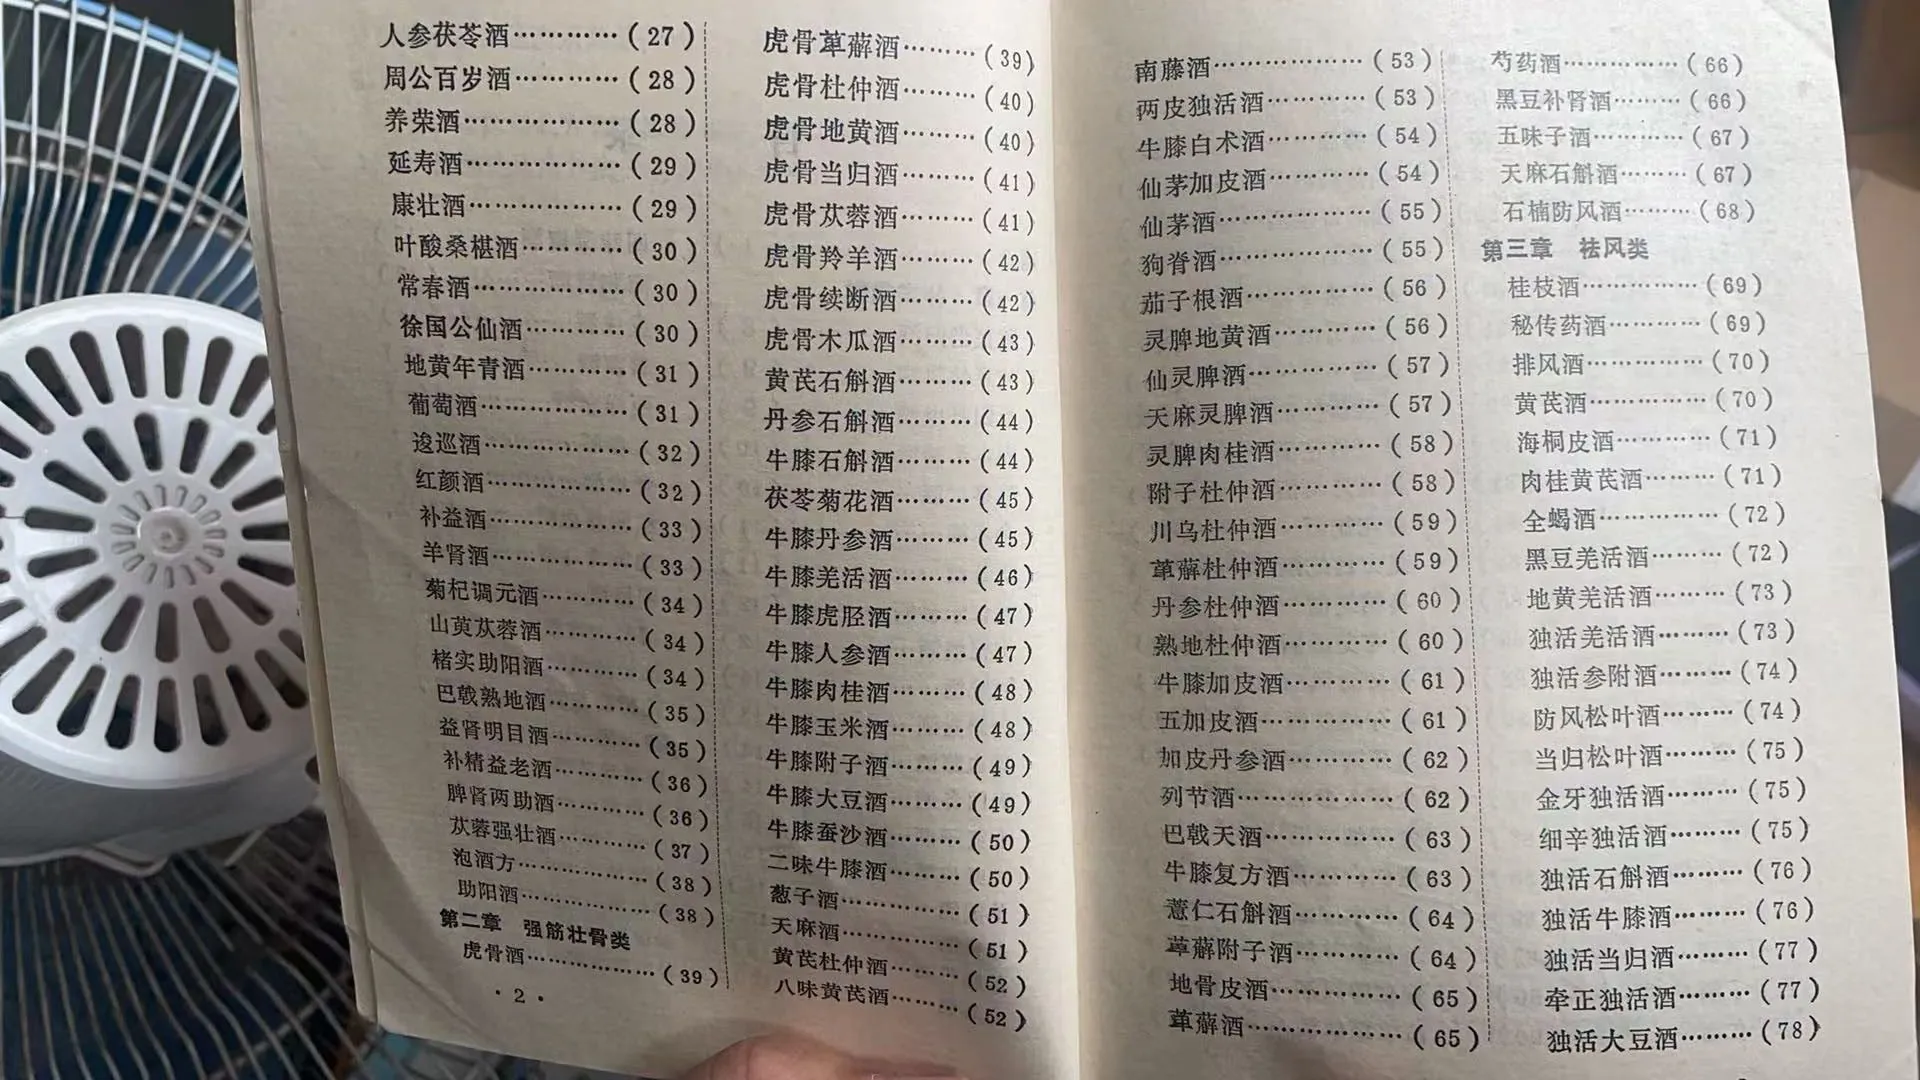 人参茯苓酒…………(27)
周公百岁酒…………(28)
养荣酒………………(28)
延寿酒………………(29)
康壮酒………………(29)
叶酸桑椹酒…………(30)
常春酒………………(30)
徐国公仙酒…………(30)
地黄年青酒…………(31)
葡萄酒………………(31)
逡巡酒………………(32)
红颜酒………………(32)
补益酒………………(33)
羊肾酒………………(33)
菊杞调元酒…………(34)
山萸苁蓉酒…………(34)
楮实助阳酒…………(34)
巴戟熟地酒…………(35)
益肾明目酒…………(35)
补精益老酒…………(36)
脾肾两助酒…………(36)
苁蓉强壮酒…………(37)
泡酒方………………(38)
助阳酒………………(38)
第二章 强筋壮骨类
虎骨酒………………(39)
·2·
虎骨萆薢酒………(39)
虎骨杜仲酒………(40)
虎骨地黄酒………(40)
虎骨当归酒………(41)
虎骨苁蓉酒………(41)
虎骨羚羊酒………(42)
虎骨续断酒………(42)
虎骨木瓜酒………(43)
黄芪石斛酒………(43)
丹参石斛酒………(44)
牛膝石斛酒………(44)
茯苓菊花酒………(45)
牛膝丹参酒………(45)
牛膝羌活酒………(46)
牛膝虎胫酒………(47)
牛膝人参酒………(47)
牛膝肉桂酒………(48)
牛膝玉米酒………(48)
牛膝附子酒………(49)
牛膝大豆酒………(49)
牛膝蚕沙酒………(50)
二味牛膝酒………(50)
葱子酒……………(51)
天麻酒……………(51)
黄芪杜仲酒………(52)
八味黄芪酒………(52)
南藤酒………………(53)
两皮独活酒…………(53)
牛膝白术酒…………(54)
仙茅加皮酒…………(54)
仙茅酒………………(55)
狗脊酒………………(55)
茄子根酒……………(56)
灵脾地黄酒…………(56)
仙灵脾酒……………(57)
天麻灵脾酒…………(57)
灵脾肉桂酒…………(58)
附子杜仲酒…………(58)
川乌杜仲酒…………(59)
萆薢杜仲酒…………(59)
丹参杜仲酒…………(60)
熟地杜仲酒…………(60)
牛膝加皮酒…………(61)
五加皮酒……………(61)
加皮丹参酒…………(62)
列节酒………………(62)
巴戟天酒……………(63)
牛膝复方酒…………(63)
薏仁石斛酒…………(64)
萆薢附子酒…………(64)
地骨皮酒……………(65)
萆薢酒………………(65)
芍药酒……………(66)
黑豆补肾酒………(66)
五味子酒…………(67)
天麻石斛酒………(67)
石楠防风酒………(68)
第三章 祛风类
桂枝酒……………(69)
秘传药酒…………(69)
排风酒……………(70)
黄芪酒……………(70)
海桐皮酒…………(71)
肉桂黄芪酒………(71)
全蝎酒……………(72)
黑豆羌活酒………(72)
地黄羌活酒………(73)
独活羌活酒………(73)
独活参附酒………(74)
防风松叶酒………(74)
当归松叶酒………(75)
金牙独活酒………(75)
细辛独活酒………(75)
独活石斛酒………(76)
独活牛膝酒………(76)
独活当归酒………(77)
牵正独活酒………(77)
独活大豆酒………(78)